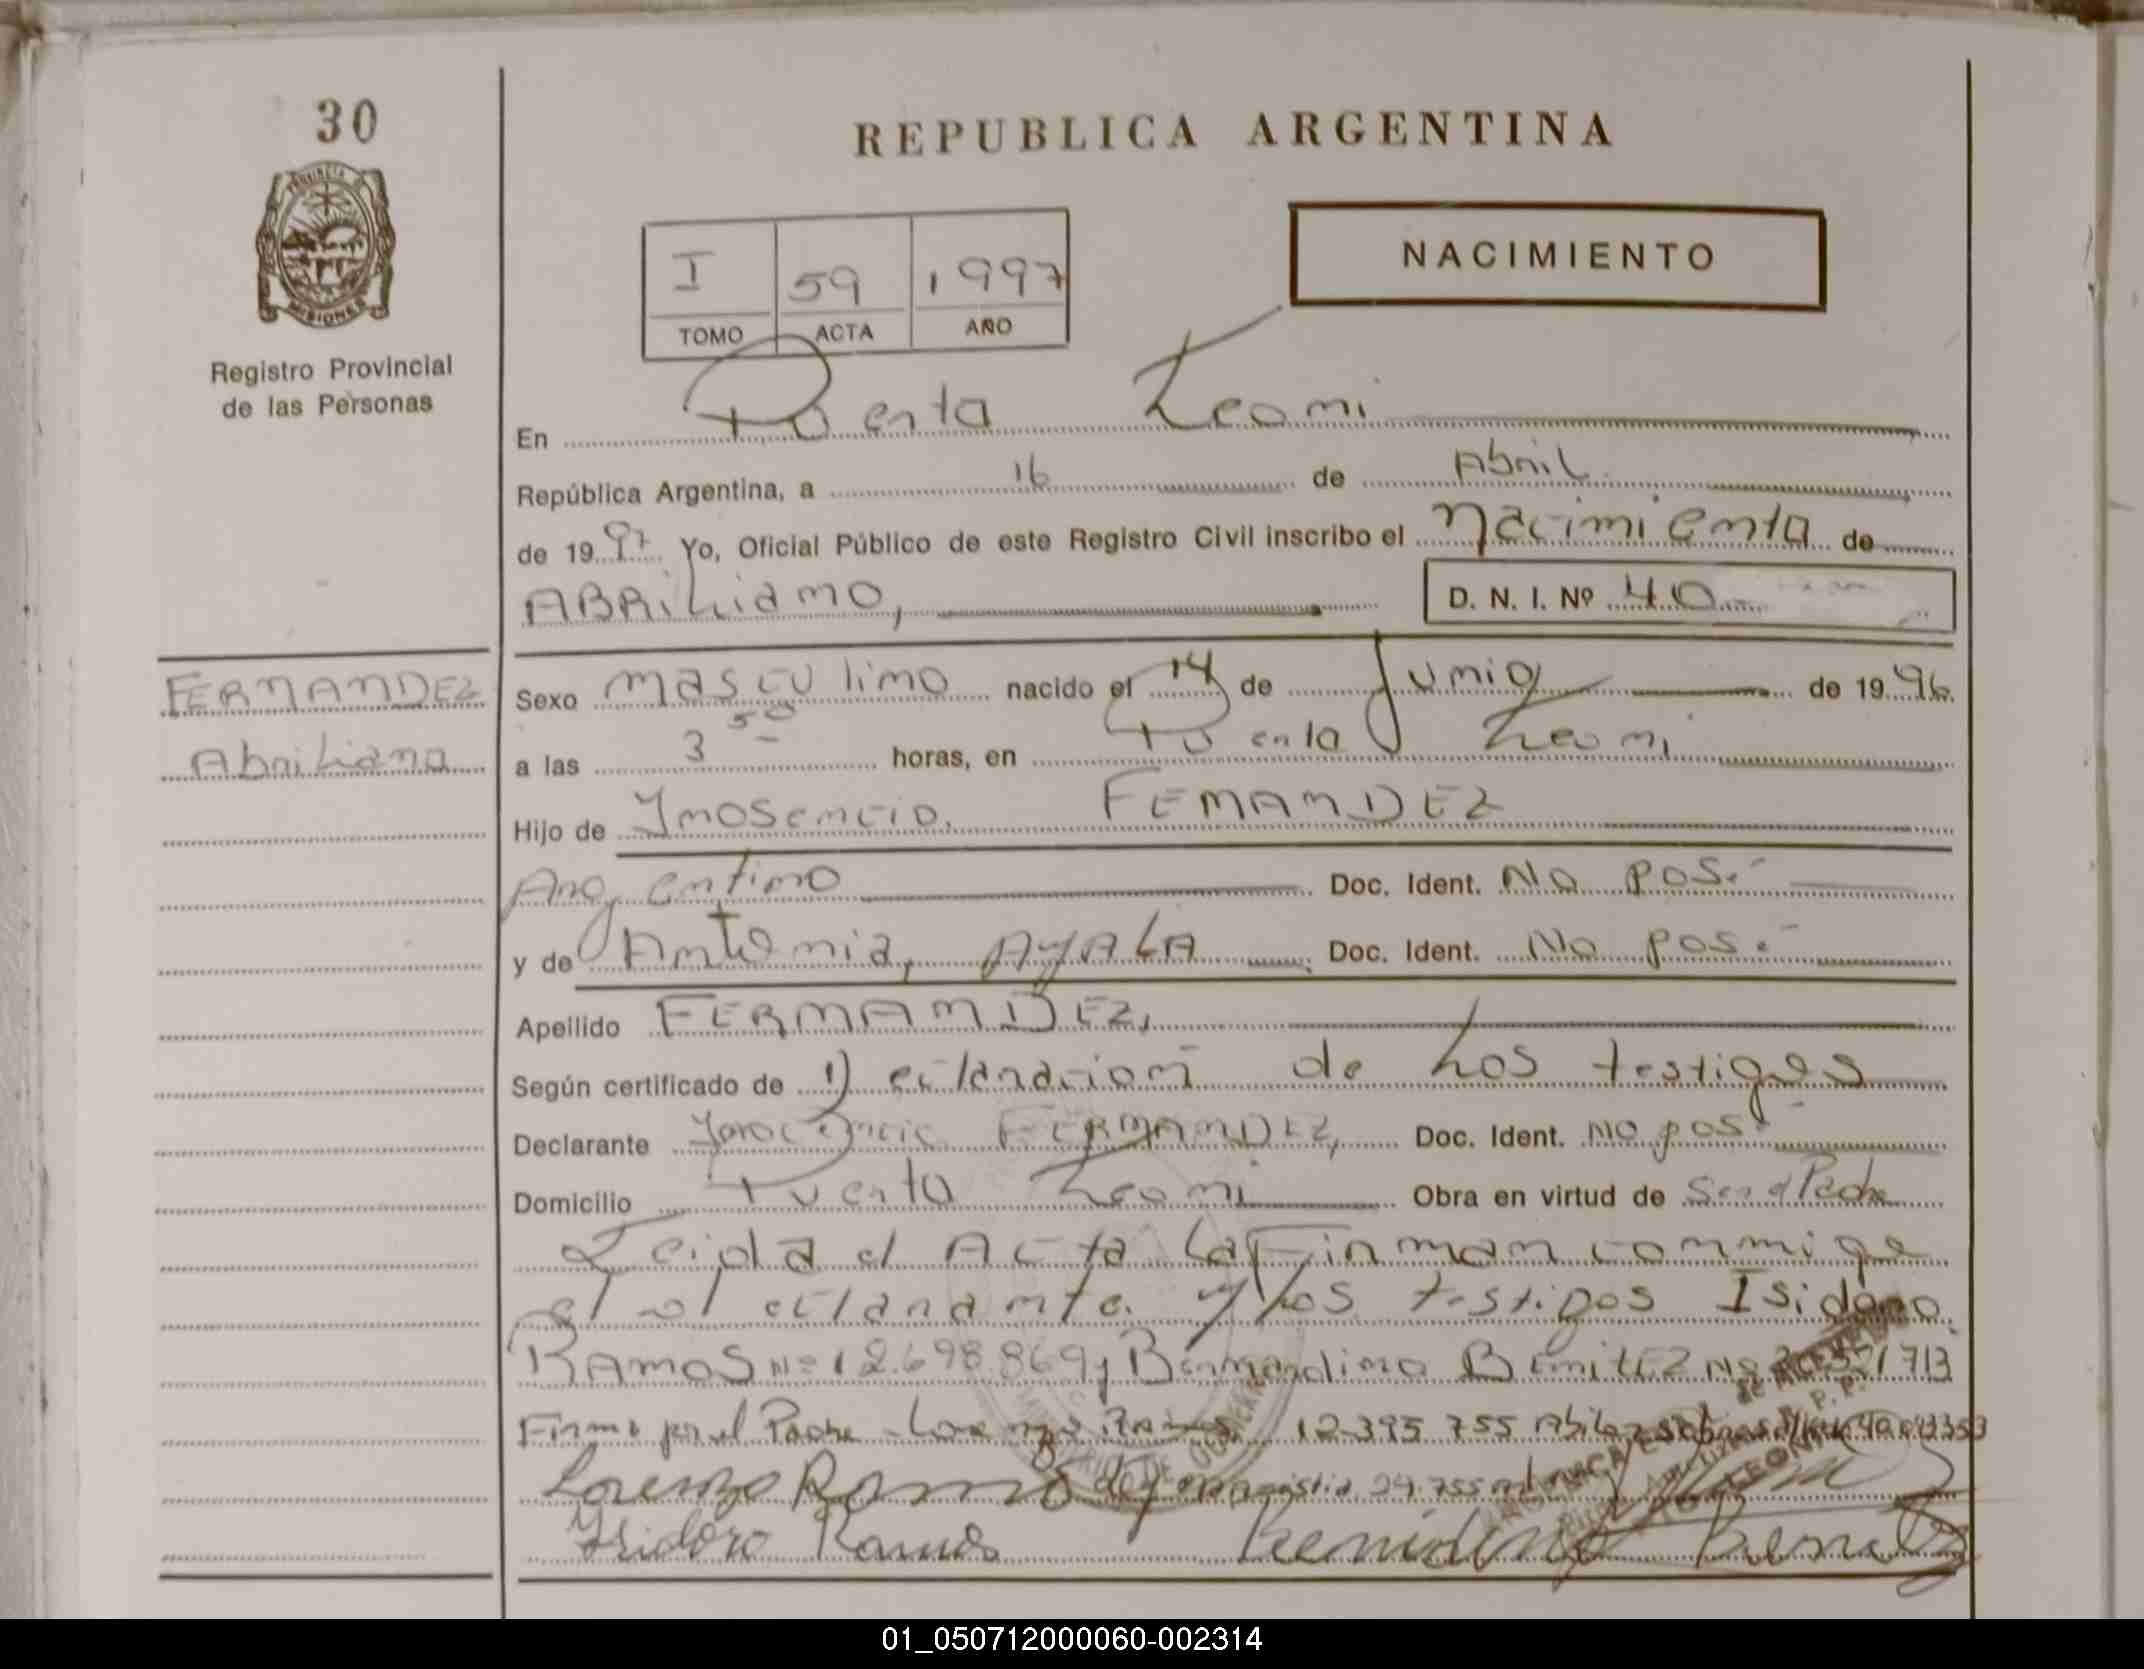 30
REPUBLICA ARGENTINA
PROVINCIA
MISIONES
Registro Provincial
de las Personas
NACIMIENTO
I 59 1997
TOMO ACTA AÑO
En Puerto Leoni
República Argentina, a 16 de Abril
de 1997 Yo, Oficial Público de este Registro Civil inscribo el nacimiento de
ABRiLiano,
D. N. I. Nº 40
FERNANDEZ
Abriliano
Sexo masculino nacido el 14 de Junio de 1996.
a las 3 50 horas, en Puerto Leoni
Hijo de Ynosencio. FERNANDEZ
Argentino Doc. Ident. No pos.-
y de Antonia, AYALA Doc. Ident. No pos.-
Apellido FERNANDEZ,
Según certificado de Declaracion de Los testigos
Declarante Ynocencio FERNANDEZ, Doc. Ident. No pos-
Domicilio Puerto Leoni Obra en virtud de Ser el Padre
Leida el Acta La Firman conmigo
el declarante y Los testigos Isidoro
RAMOS Nº 12.698.869 y Bernardino BENITEZ Nº 713
Firma por el Padre - Lorenzo Ramos 12395 755
Lorenzo Ramos
Isidoro Ramos Benitez
01_050712000060-002314